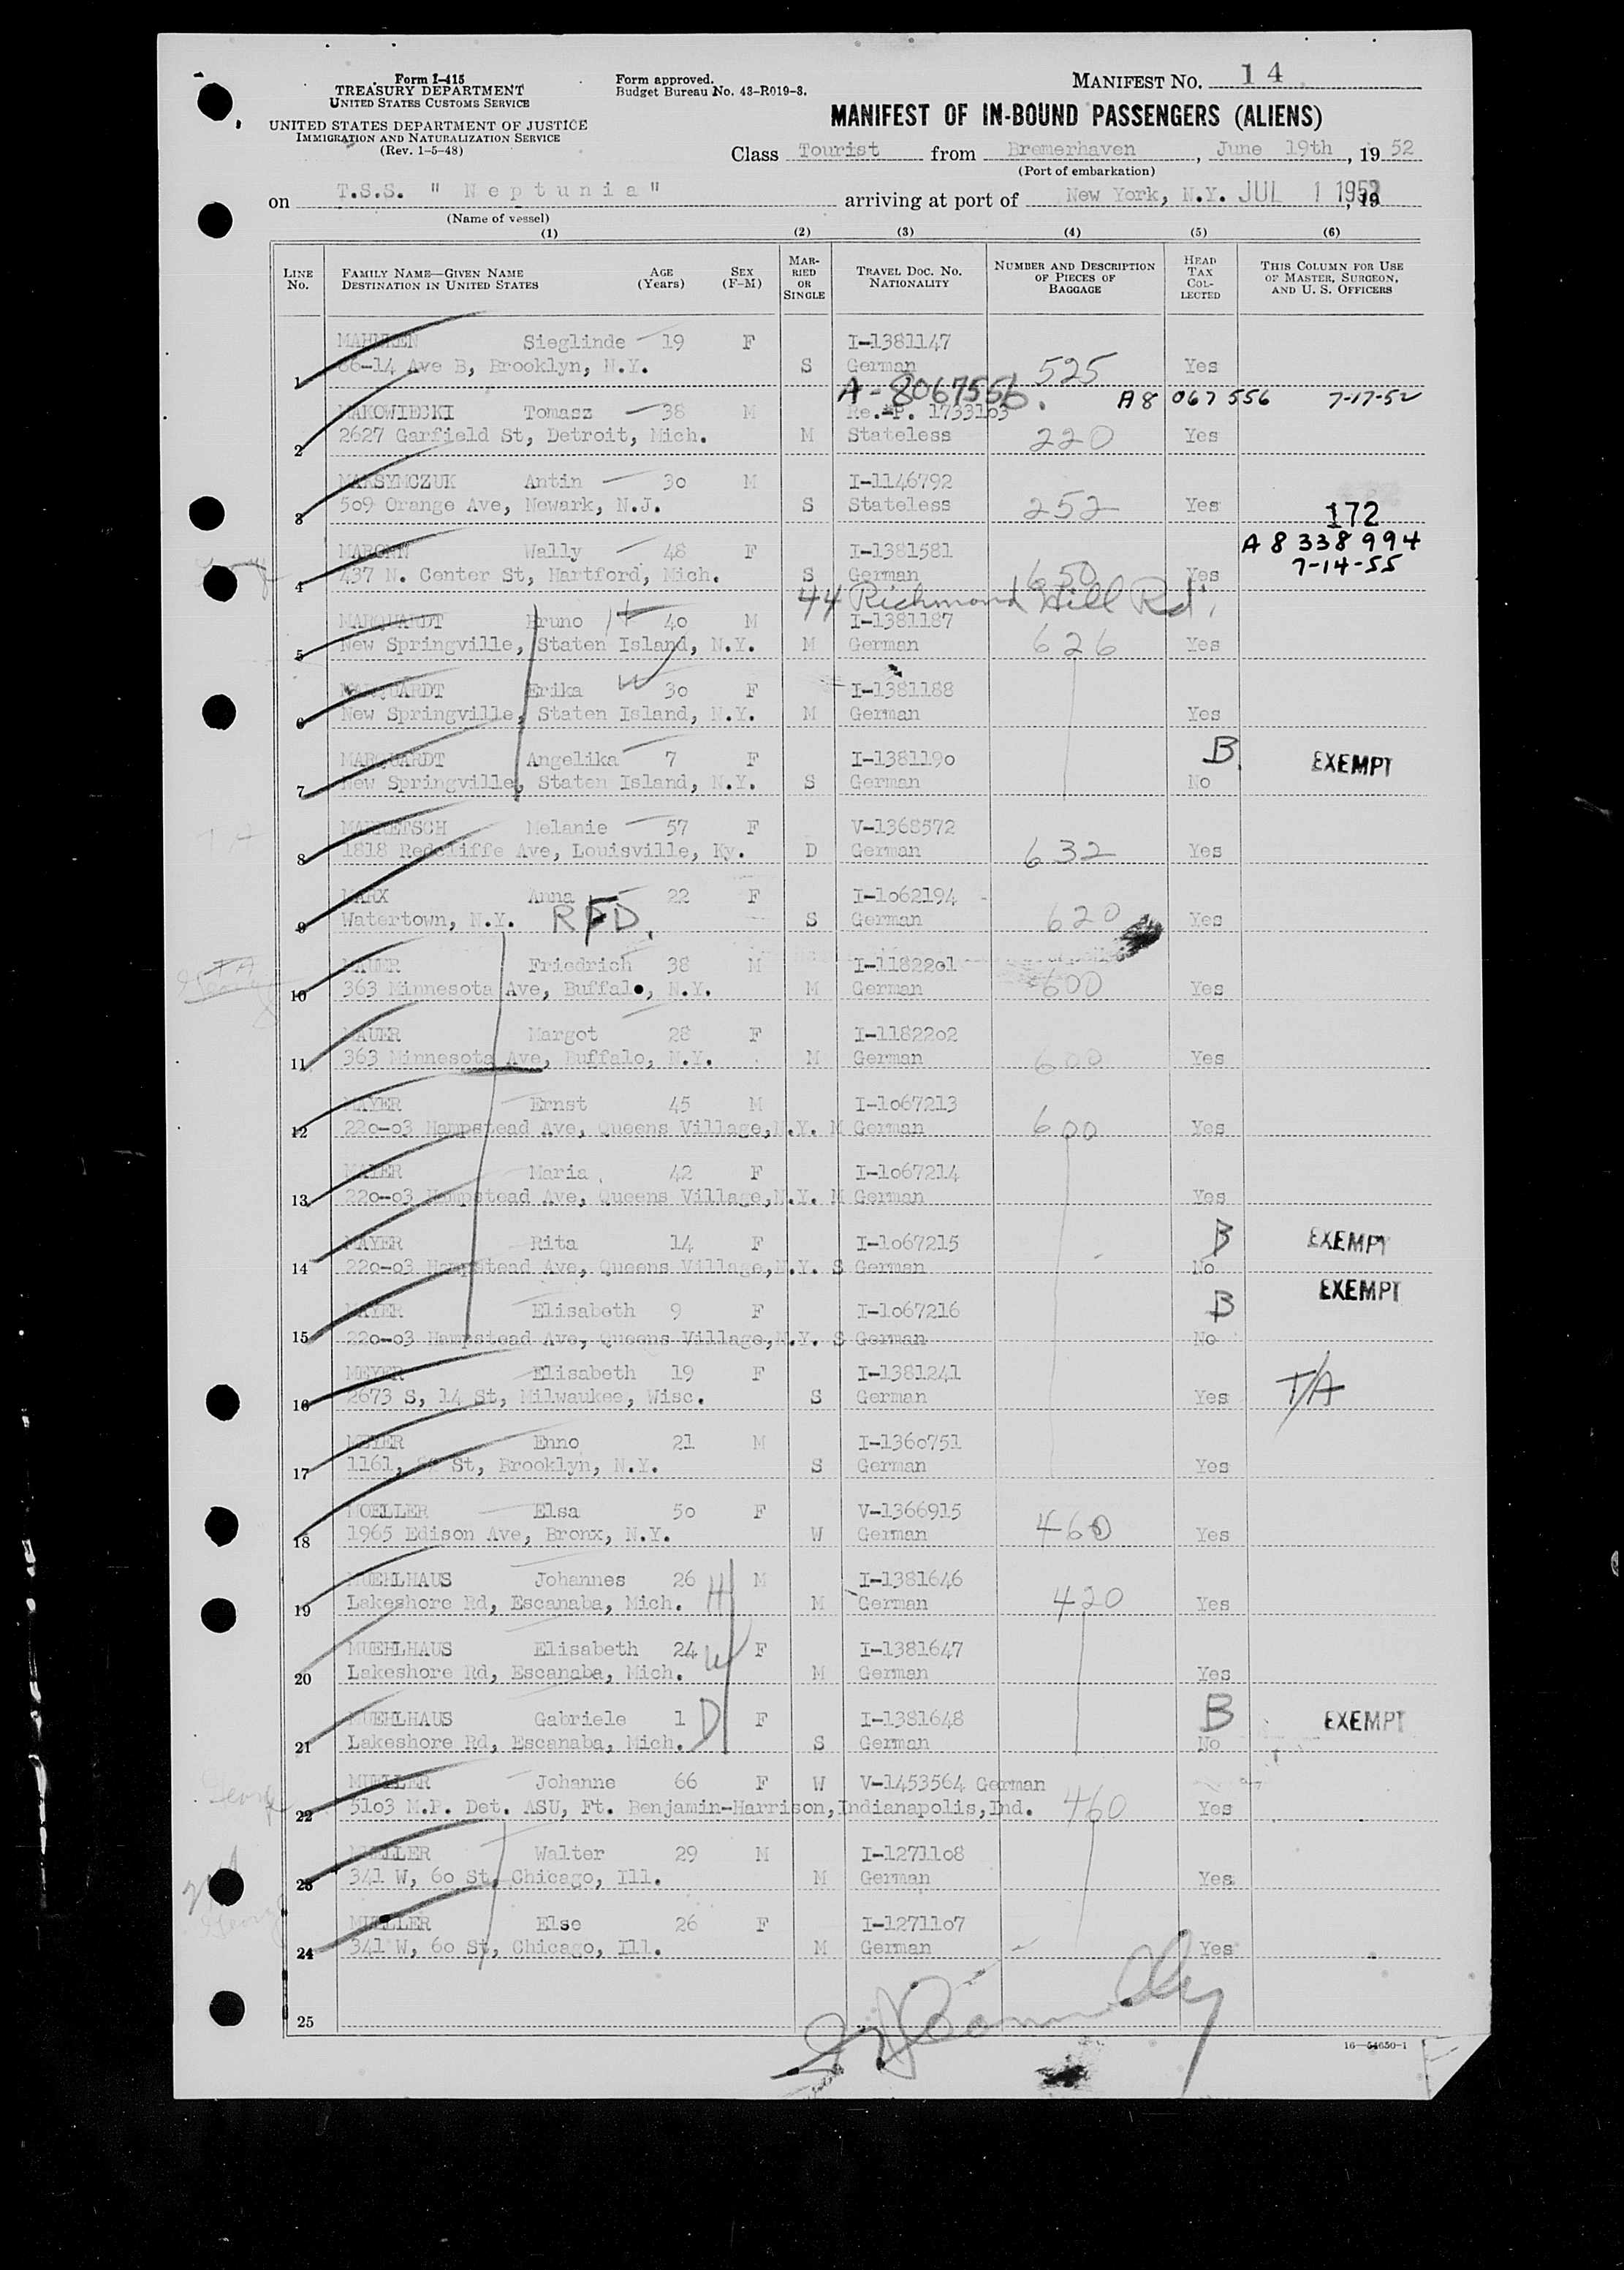 Form I-415
TREASURY DEPARTMENT
UNITED STATES CUSTOMS SERVICE
UNITED STATES DEPARTMENT OF JUSTICE
IMMIGRATION AND NATURALIZATION SERVICE
(Rev. 1-5-48)
Form approved.
Budget Bureau No. 43-R019-3.
MANIFEST NO. 14
MANIFEST OF IN-BOUND PASSENGERS (ALIENS)
Class Tourist from Bremerhaven, June 19th, 19 52
(Port of embarkation)
on T.S.S. " Neptunia" arriving at port of New York, N.Y. JUL 1 1952, 19
(Name of vessel)
(1) (2) (3) (4) (5) (6)
LINE No. FAMILY NAME—GIVEN NAME DESTINATION IN UNITED STATES AGE (Years) SEX (F-M) MARRIED OR SINGLE TRAVEL DOC. NO. NATIONALITY NUMBER AND DESCRIPTION OF PIECES OF BAGGAGE HEAD TAX COLLECTED THIS COLUMN FOR USE OF MASTER, SURGEON, AND U. S. OFFICERS
MAHNKEN Sieglinde 19 F I-1381147
1 86-14 Ave B, Brooklyn, N.Y. S German 525 Yes
A-8067556. A8 067 556 7-17-52
MAKOWIECKI Tomasz 38 M Re.-P. 1733103
2 2627 Garfield St, Detroit, Mich. M Stateless 220 Yes
MAKSYMCZUK Antin 30 M I-1146792
3 509 Orange Ave, Newark, N.J. S Stateless 252 Yes 172
Wally 48 F I-1381581 A8 338 994
4 437 N. Center St, Hartford, Mich. S German 650 Yes 7-14-55
44 Richmond Hill Rd.
MARQUARDT Bruno H 40 M I-1381187
5 New Springville, Staten Island, N.Y. M German 626 Yes
MARQUARDT Erika W 30 F I-1381188
6 New Springville, Staten Island, N.Y. M German Yes
MARQUARDT Angelika 7 F I-1381190 B. EXEMPT
7 New Springville, Staten Island, N.Y. S German No
Melanie 57 F V-1368572
8 1818 Redcliffe Ave, Louisville, Ky. D German 632 Yes
MARX Anna 22 F I-1062194
9 Watertown, N.Y. RFD. S German 620 Yes
MAUER Friedrich 38 M I-1182201
10 363 Minnesota Ave, Buffalo, N.Y. M German 600 Yes
MAUER Margot 28 F I-1182202
11 363 Minnesota Ave, Buffalo, N.Y. M German 600 Yes
MAYER Ernst 45 M I-1067213
12 220-03 Hampstead Ave, Queens Village, N.Y. M German 600 Yes
MAYER Maria 42 F I-1067214
13 220-03 Hampstead Ave, Queens Village, N.Y. M German Yes
MAYER Rita 14 F I-1067215 B EXEMPT
14 220-03 Hampstead Ave, Queens Village, N.Y. S German No
MAYER Elisabeth 9 F I-1067216 B EXEMPT
15 220-03 Hampstead Ave, Queens Village, N.Y. S German No
MEYER Elisabeth 19 F I-1381241 T/A
16 2673 S, 14 St, Milwaukee, Wisc. S German Yes
MEYER Enno 21 M I-1360751
17 1161, St, Brooklyn, N.Y. S German Yes
MOELLER Elsa 50 F V-1366915
18 1965 Edison Ave, Bronx, N.Y. W German 460 Yes
MUEHLHAUS Johannes 26 H M I-1381646
19 Lakeshore Rd, Escanaba, Mich. M German 420 Yes
MUEHLHAUS Elisabeth 24 W F I-1381647
20 Lakeshore Rd, Escanaba, Mich. M German Yes
MUEHLHAUS Gabriele 1 D F I-1381648 B EXEMPT
21 Lakeshore Rd, Escanaba, Mich. S German No
MUELLER Johanne 66 F W V-1453564 German
22 5103 M.P. Det. ASU, Ft. Benjamin-Harrison, Indianapolis, Ind. 460 Yes
MUELLER Walter 29 M I-1271108
23 341 W, 60 St, Chicago, Ill. M German Yes
MUELLER Else 26 F I-1271107
24 341 W, 60 St, Chicago, Ill. M German Yes
25
16—54650-1